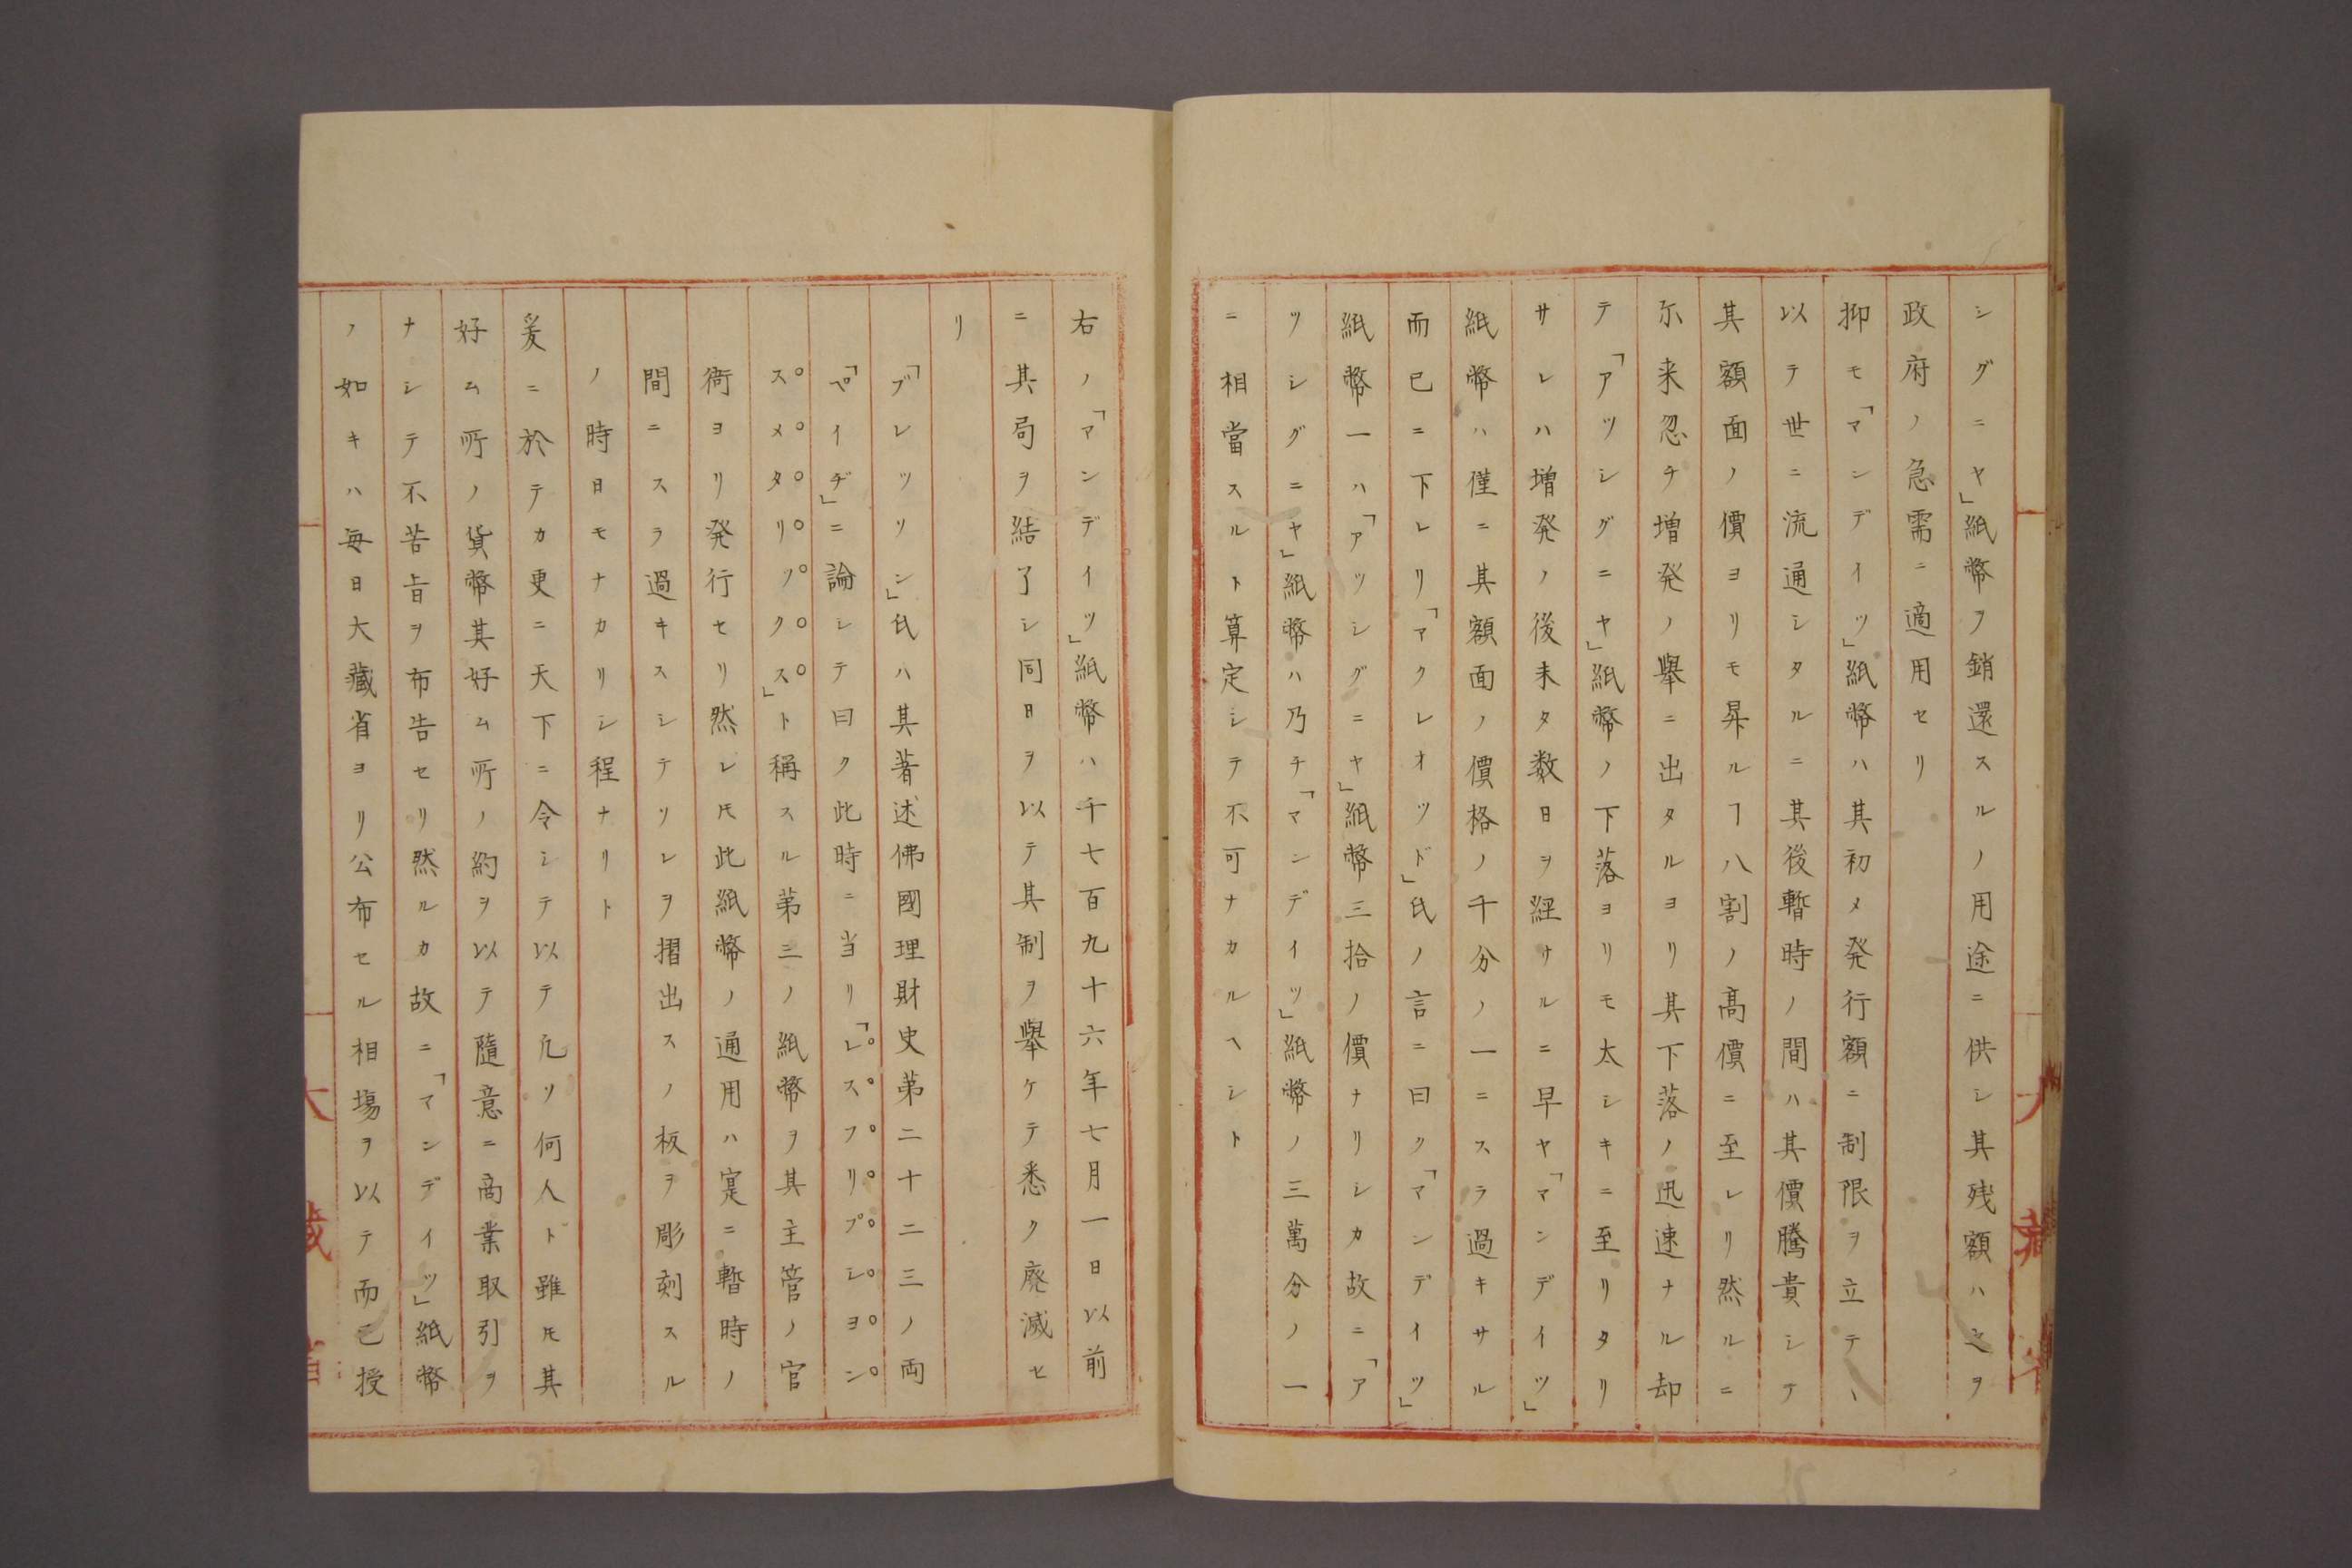 シグニヤ」紙幣ヲ銷還スルノ用途ニ供シ其残額ハ之ヲ
政府ノ急需ニ適用セリ
抑モ「マンデイツ」紙幣ハ其初メ発行額ニ制限ヲ立テヽ
以テ世ニ流通シタルニ其後暫時ノ間ハ其價騰貴シテ
其額面ノ價ヨリモ昇ルヿ八割ノ高價ニ至レリ然ルニ
尓来忽チ増発ノ舉ニ出タルヨリ其下落ノ迅速ナル却
テ「アツシグニヤ」紙幣ノ下落ヨリモ太シキニ至リタリ
サレハ増発ノ後未タ数日ヲ経サルニ早ヤ「マンデイツ」
紙幣ハ僅ニ其額面ノ價格ノ千分ノ一ニスラ過キサル
而已ニ下レリ「アクレオツド」氏ノ言ニ曰ク「マンデイツ」
紙幣一ハ「アツシグニヤ」紙幣三拾ノ價ナリシカ故ニ「ア
ツシグニヤ」紙幣ハ乃チ「マンデイツ」紙幣ノ三萬分ノ一
ニ相當スルト算定シテ不可ナカルヘシト
大藏省
右ノ「マンデイツ」紙幣ハ千七百九十六年七月一日以前
ニ其局ヲ結了シ同日ヲ以テ其制ヲ舉ケテ悉ク廃滅セ
リ
「ブレツソン」氏ハ其著述佛國理財史第二十二三ノ両
「ペイヂ」ニ論シテ曰ク此時ニ当リ「レスフリプシヨン
スメタリツクス」ト稱スル第三ノ紙幣ヲ其主管ノ官
衙ヨリ発行セリ然レ𪜈此紙幣ノ通用ハ寔ニ暫時ノ
間ニスラ過キスシテソレヲ摺出スノ板ヲ彫刻スル
ノ時日モナカリシ程ナリト
爰ニ於テカ更ニ天下ニ令シテ以テ凡ソ何人ト雖𪜈其
好ム所ノ貨幣其好ム所ノ約ヲ以テ隨意ニ商業取引ヲ
ナシテ不苦旨ヲ布告セリ然ルカ故ニ「マンデイツ」紙幣
ノ如キハ毎日大藏省ヨリ公布セル相塲ヲ以テ而已授
大藏省